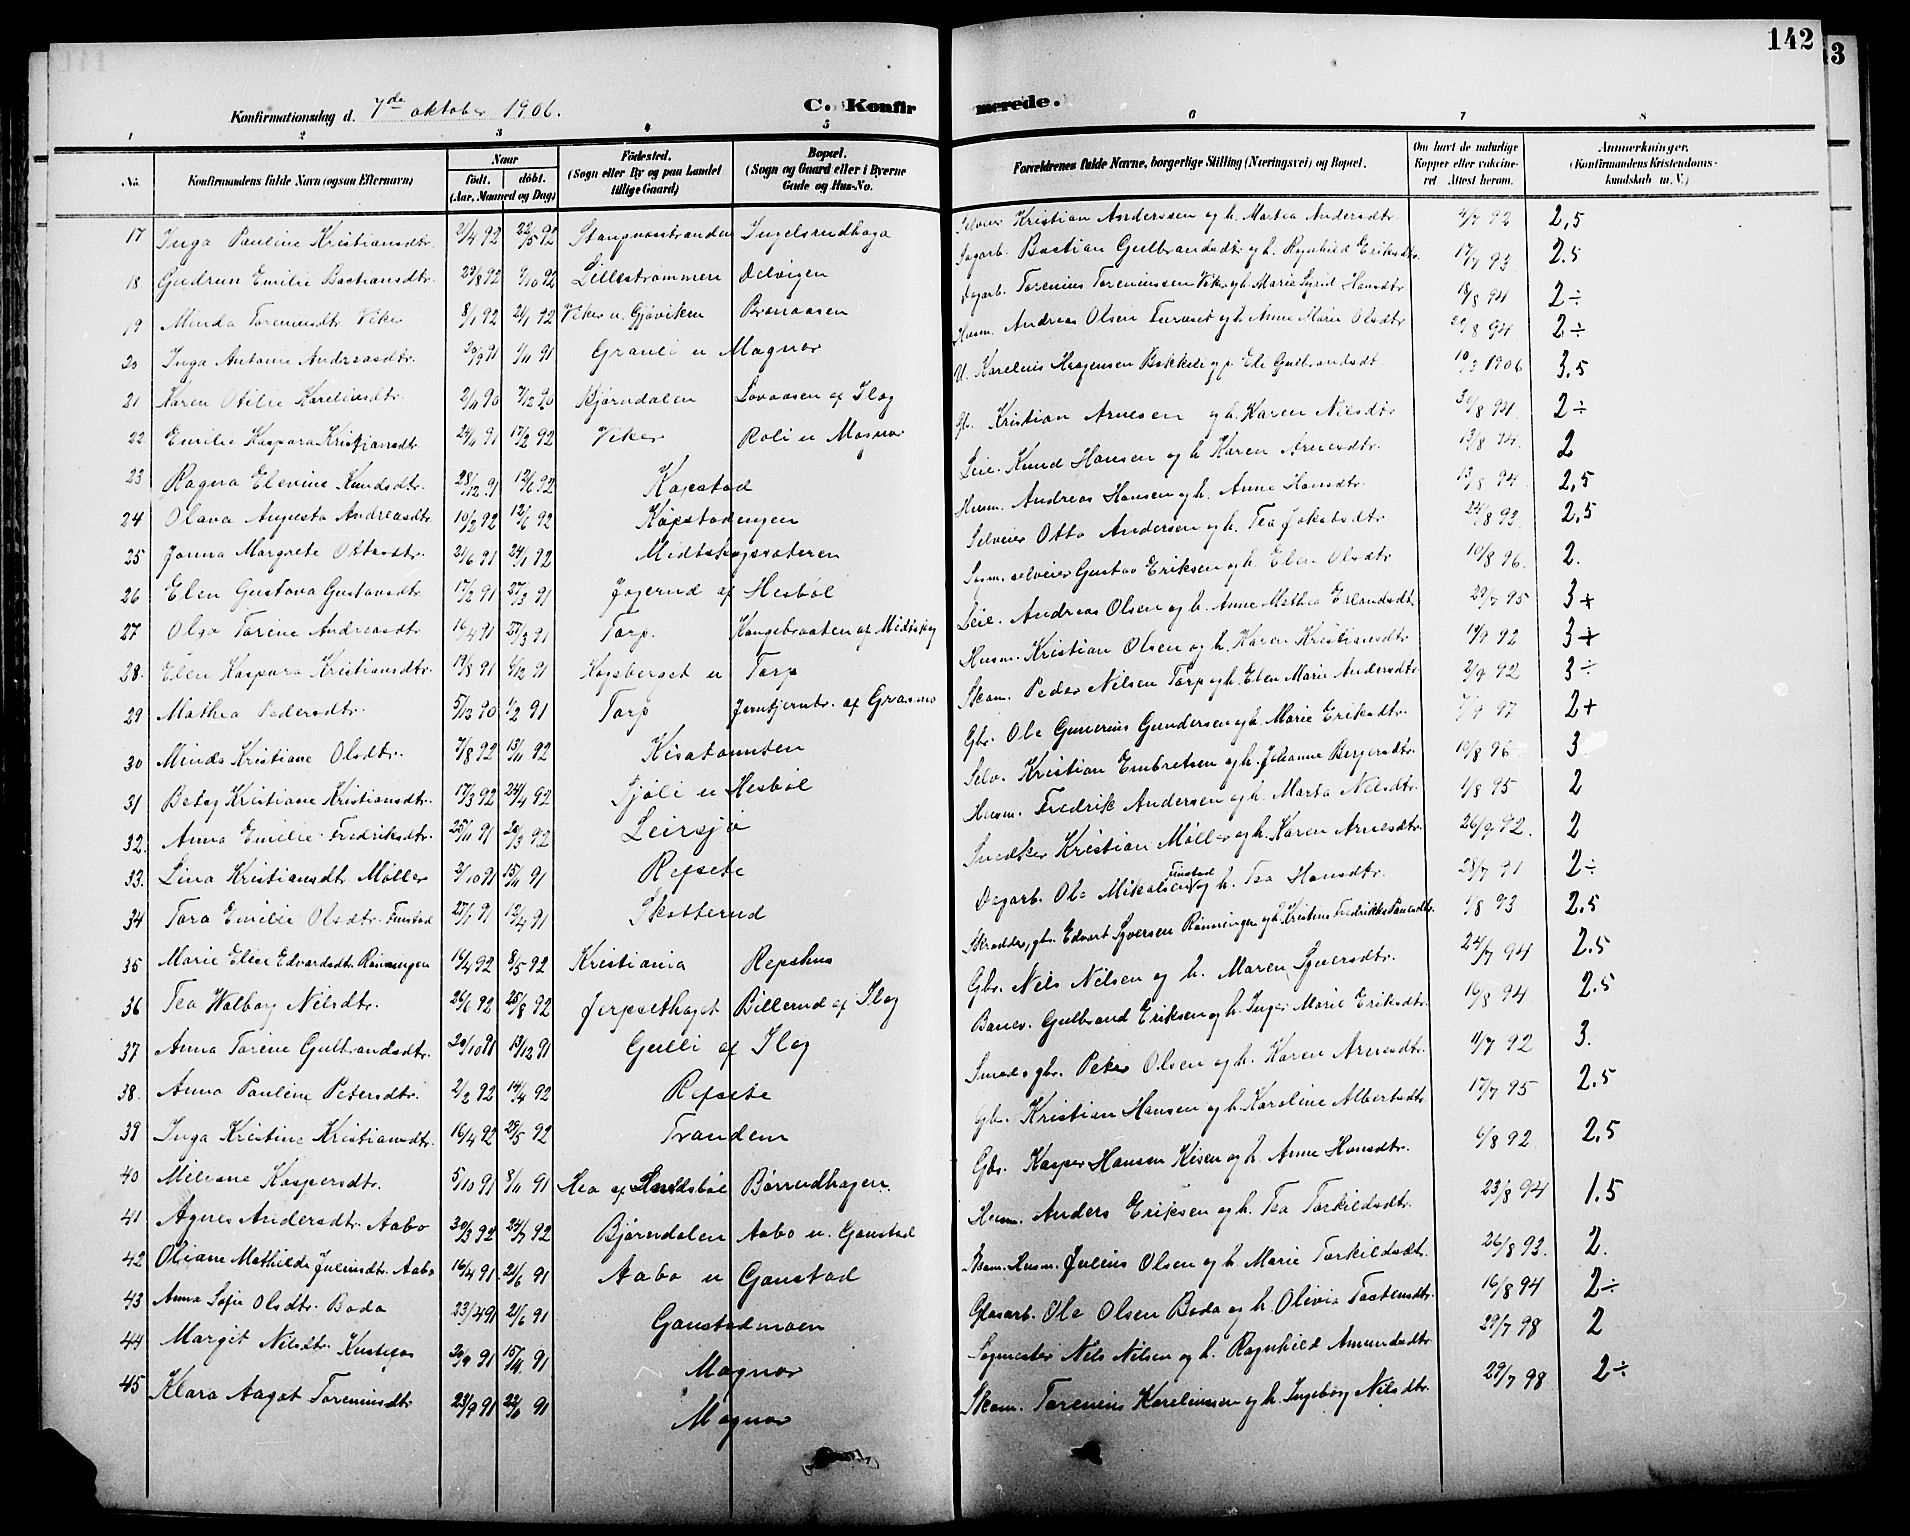 142
3
Konfirmationsdag d. 7de oktober 1906.
C. Konfirmerede.
1 2 3 4 5 6 7 8
No.
Konfirmandens fulde Navn (ogsaa Efternavn)
Naar
födt. döbt.
(Aar, Maaned og Dag)
Födested.
(Sogn eller By og paa Landet
tillige Gaard)
Bopæl.
(Sogn og Gaard eller i Byerne
Gade og Hus-No.
Forældrenes fulde Navne, borgerlige Stilling (Næringsvei) og Bopæl.
Om havt de naturlige
Kopper eller vaccine-
ret Attest herom.
Anmerkninger.
(Konfirmandens Kristendoms-
kundskab m. V.)
17 Inga Pauline Kristiansdtr. 2/4 92 22/5 92 Stangnæsstranden Ingelsrudhaga Selveier Kristian Anderssen og h. Martea Andersdtr. 4/7 92 2,5
18 Gudrun Emilie Bastiansdtr. 29/8 92 9/10 92 Lillestrømmen Delvigen Sagarb. Bastian Gulbrandsdtr. og h. Ragnhild Eriksdtr. 17/7 93 2.5
19 Minda Toreniusdtr. Viker 8/1 92 24/1 92 Viker u. Gjøviken Branaasen Dagarb. Torenius Toreniussen Viker og h. Marie Sigrid Hansdtr 18/8 94 2÷
20 Inga Antonie Andreasdtr. 20/9 91 1/11 91 Granli u Magnor Husm. Andreas Olsen Furuset og h. Anne Marie Olsdtr. 20/8 94 2÷
21 Karen Otilie Kareliusdtr. 2/11 90 7/12 90 Bjørndalen Lovaasen af Ilag U. Karelius Haagensen Bakkeli og p. Eli Gulbrandsdt. 10/3 1906 3,5
22 Emilie Kaspara Kristiansdtr. 24/11 91 17/2 92 Viker Roli u Magnor Gbr. Kristian Arnesen og h. Karen Nilsdtr 30/8 94 2÷
23 Ragna Elevine Knudsdtr. 28/12 91 12/6 92 Kopstad Leil. Knud Hansen og h. Karen Arnesdtr. 13/8 94 2
24 Olava Augusta Andreasdtr 10/2 92 12/6 92 Kopstadengen Husm. Andreas Hansen og h. Anne Hansdtr. 13/8 94 2,5
25 Janna Margrete Ottosdtr. 21/6 91 24/1 92 Midtskogssæteren Selveier Otto Andersen og h. Tea Jakobsdtr. 24/8 93 2,5
26 Elen Gustava Gustavsdtr 17/2 91 27/3 91 Jogerud af Hesbøl Sagm. selveier Gustav Eriksen og h. Elen Olsdtr 10/8 96 2.
27 Olga Torine Andreasdtr 16/1 91 27/3 91 Torp. Kangebraaten af Midtskog Leil. Andreas Olsen og h. Anne Mathea Erlandsdtr 29/7 95 3+
28. Elen Kaspara Kristiansdtr. 19/8 91 6/12 91 Hogsberget u Torp Husm. Kristian Olsen og h. Karen Kristiansdtr 19/9 92 3+
29 Mathea Pedersdtr. 5/12 90 1/2 91 Torp Jerntjernbr. af Grasmo Skom. Peder Nilsen Torp og h. Elen Marie Andersdtr 2/9 92 3÷
30 Minda Kristiane Olsdtr. 7/8 92 13/11 92 Kisatomten Gbr. Ole Gunerius Gundersen og h. Marie Eriksdtr. 7/9 97 2+
31 Betsy Kristiane Kristiansdtr. 17/3 92 24/4 92 Sjøli u Hesbøl Selv. Kristian Embretsen og h. Johanne Bergersdtr. 10/8 96 3.
32. Anna Emilie Fredriksdtr. 25/11 91 20/3 92 Leirsjø Husm. Fredrik Andersen og h. Marta Nilsdtr. 1/8 95 2
33. Lina Kristiansdtr Møller 2/10 91 15/11 91 Repsete Snedker Kristian Møller og h. Karen Arnesdtr. 26/9 92. 2
34 Tora Emilie Olsdtr. Finstad 27/1 91 12/4 91 Skotterud Dagarb. Ole Mikalsen Finstad og h. Tea Hansdtr. 28/7 91 2÷
35 Marie Elise Edvardsdtr Rønningen 16/4 92 8/5 92 Kristiania Repshus Skrædder, gbr. Edvart Syversen Rønningen og h. Kristine Fredrikke Paulsdtr. 1/8 93 2.5
36 Tea Walborg Nilsdtr. 26/6 92 25/8 92 Jerpsethaget Billerud af Ilag Gbr. Nils Nilsen og h. Maren Syversdtr. 24/7 94 2.5
37 Anna Torine Gulbrandsdtr. 20/10 91 13/12 91 Gulli af Ilag Banev. Gulbrand Eriksen og h. Inger Marie Eriksdtr. 16/8 94 2.5
38. Anna Pauline Petersdtr. 2/2 92 14/4 92 Repsete Smed, gbr. Peter Olsen og h. Karen Arnesdtr. 11/7 92 3.
39 Inga Kristine Kristiansdtr. 16/4 92 29/5 92 Trandem Gbr. Kristian Hansen og h. Karoline Albertsdtr 17/7 95 2.5
40 Miliane Kaspersdtr. 5/10 91 8/11 91 Hea af Lundsbøl Børrudhagen. Gbr. Kasper Hansen Kisen og h. Anne Hansdtr. 6/8 92. 2,5
41 Agnes Andersdtr. Aabo 30/3 92 24/7 92 Bjørndalen Aabo u. Gaustad Husm. Anders Eriksen og h. Tea Torkildsdtr. 23/8 94 1.5
42 Oliane Mathilde Juliusdtr. Aabo 16/4 91. 21/6 91 Aabo u Gaustad Skom. Husm. Julius Olsen og h. Marie Torkildsdt. 26/8 93. 2.
43 Anna Sofie Olsdtr. Boda 23/4 91 21/6 91 Gaustadmoen Glasarb. Ole Olsen Boda og h. Olivia Tostensdtr. 16/8 94 2÷
44 Margit Nilsdtr. Kustefos 20/9 91 15/11 91 Magnor Sagmester Nils Nilsen og h. Ragnhild Amundsdtr 29/7 98 2
45 Klara Aagot Toreniusdtr 23/9 91 22/11 91 Magnor Skom. Torenius Kareliussen og h. Ingeborg Nilsdtr. 29/7 98 2÷